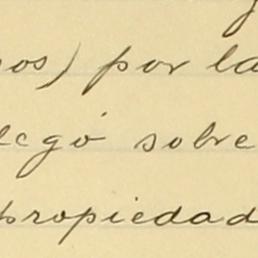 os) por la
legó sobre
propiedad